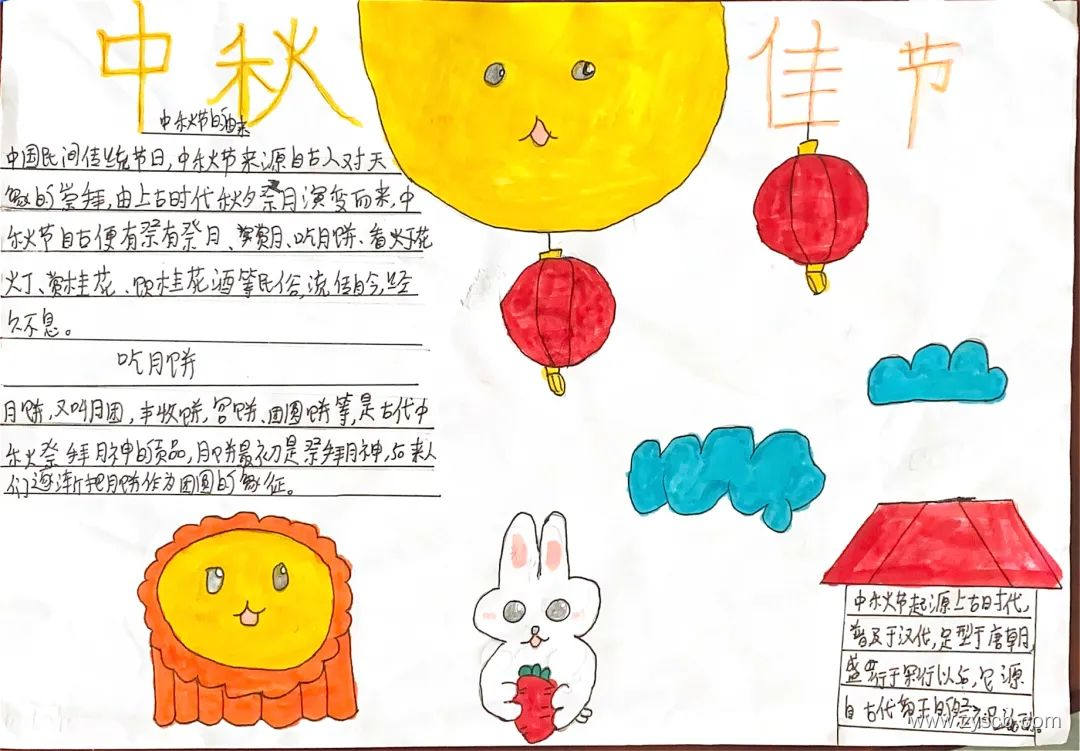 中秋佳节
中秋节的由来
中国民间传统节日，中秋节来源自古人对天
象的崇拜，由上古时代秋夕祭月演变而来，中
秋节自古便有祭有祭月、赏月、吃月饼、看灯花
灯、赏桂花、饮桂花酒等民俗，流传自今，经
久不息。
吃月饼
月饼，又叫月团，丰收饼，宫饼、团圆饼等，是古代中
秋祭拜月神的贡品，月饼最初是祭拜月神，后来人
们逐渐把月饼作为团圆的象征。
中秋节起源上古时代，
普及于汉代，定型于唐朝
盛行于 以后，它源
自古代
www.zyscb.com